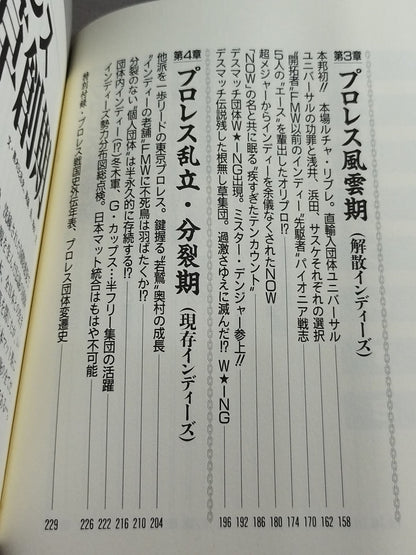 第3章 プロレス風雲期(解散インディーズ)
本邦初!! 本場ルチャ・リブレ。直輸入団体ユニバーサル 158
ユニバーサルの功罪と浅井、浜田、サスケそれぞれの選択 162
"開拓者"FMW以前のインディー"先駆者"パイオニア戦志 170
5人の"エース"を輩出したオリプロ!? 174
超メジャーからインディーを余儀なくされたNOW 180
「NOW」の名と共に眠る"疾すぎたテンカウント" 186
デスマッチ団体W★ING出現。ミスター・デンジャー参上!! 192
デスマッチ伝説残した根無し草集団。過激さゆえに滅んだ!? W★ING 196
第4章 プロレス乱立・分裂期(現存インディーズ)
他派を一歩リードの東京プロレス。鍵握る"若鷲"奥村の成長 204
"インディーの老舗"FMWに不死鳥は羽ばたくか!? 210
分裂のない"個人団体"は半永久的に存続する!? 216
団体内インディー(!?)冬木軍、G・カップス…半フリー集団の活躍 222
インディーズ勢力分布図総点検。日本マット統合はもはや不可能 226
特別付録・プロレス戦国史外伝年表、プロレス団体変遷史 229